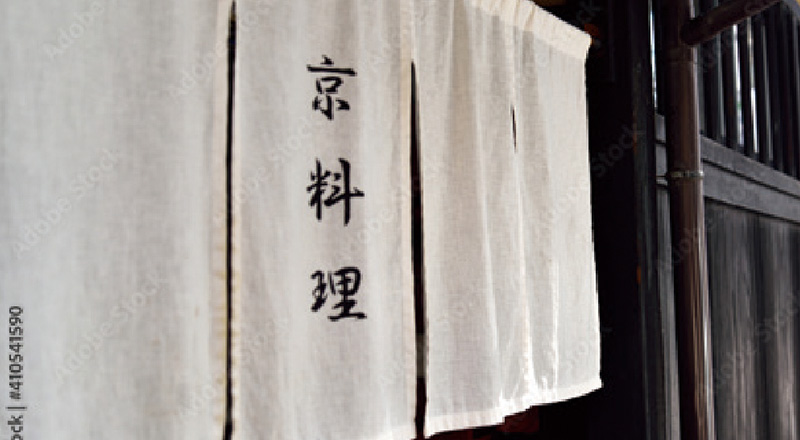 京料理
ock | #410541590
Adobe Stock